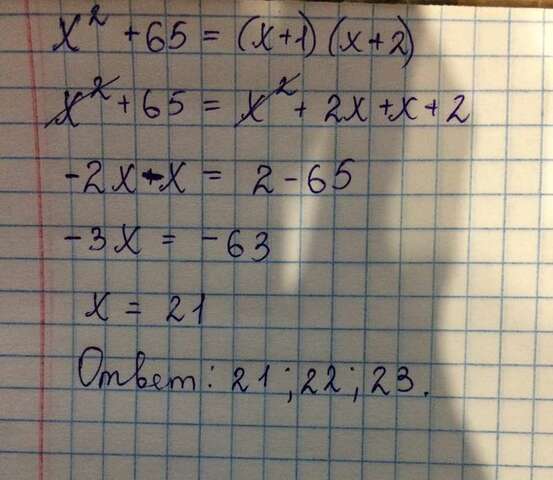 x² + 65 = (x+1)(x+2)
x² + 65 = x² + 2x + x + 2
-2x - x = 2 - 65
-3x = -63
x = 21
Ответ: 21; 22; 23.